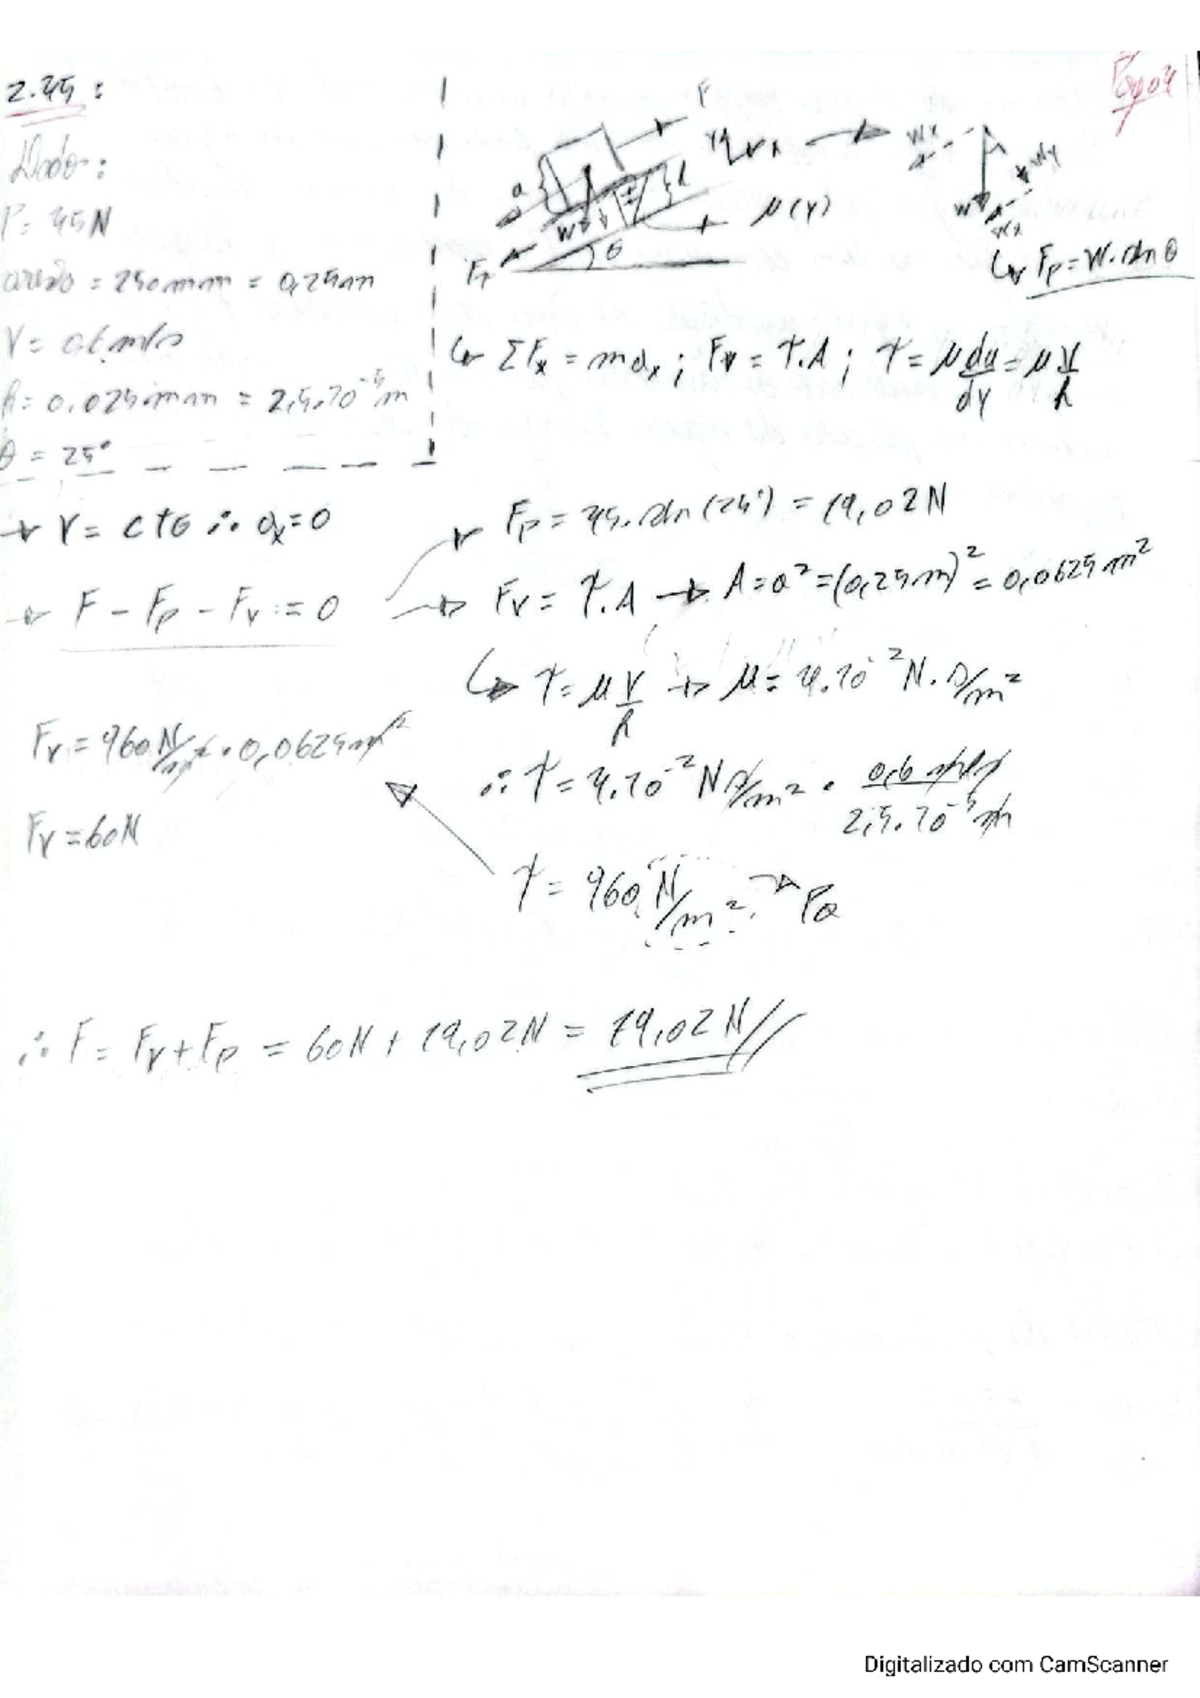 2.45:
Pag04
Dado:
P = 45N
aresta = 250mm = 0,25m
V = 0,6 m/s
h = 0,025mm = 2,5.10⁻⁵m
θ = 25°
F
a
h
W
θ
μ(Y)
Wx
Wy
W
Wx
↳ Fp = W.sen θ
↳ ΣFx = m ax ; Fv = τ.A ; τ = μ du/dy = μ V/h
→ V = cte ∴ ax = 0
→ F - Fp - Fv = 0
Fp = 45.sen(25°) = 19,02N
Fv = τ.A → A = a² = (0,25m)² = 0,0625m²
↳ τ = μ V/h → μ = 4.10⁻² N.s/m²
∴ τ = 4.10⁻² N s/m² . 0,6 m/s / 2,5.10⁻⁵ m
τ = 960 N/m² → Pa
Fv = 960 N/m² . 0,0625m²
Fv = 60N
∴ F = Fv + Fp = 60N + 19,02N = 79,02N
Digitalizado com CamScanner